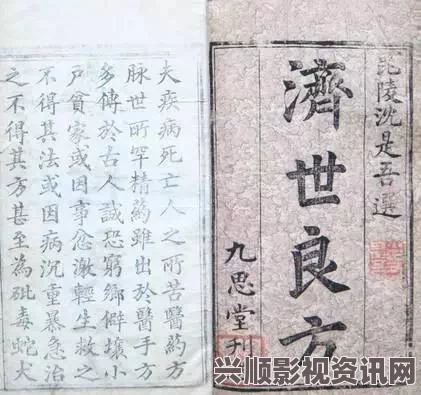 毗陵沈是吾選
濟世良方
九思堂刊
夫疾病死亡人之所苦醫藥方
脉世所罕精藥雖出於醫手方
多傳於古人誠恐窮鄉僻壤小
戶貧家或因事忿激輕生救之
不得其法或因病沉重暴急治
之不得其方甚至為砒毒蛇犬
兴顺影视资讯网